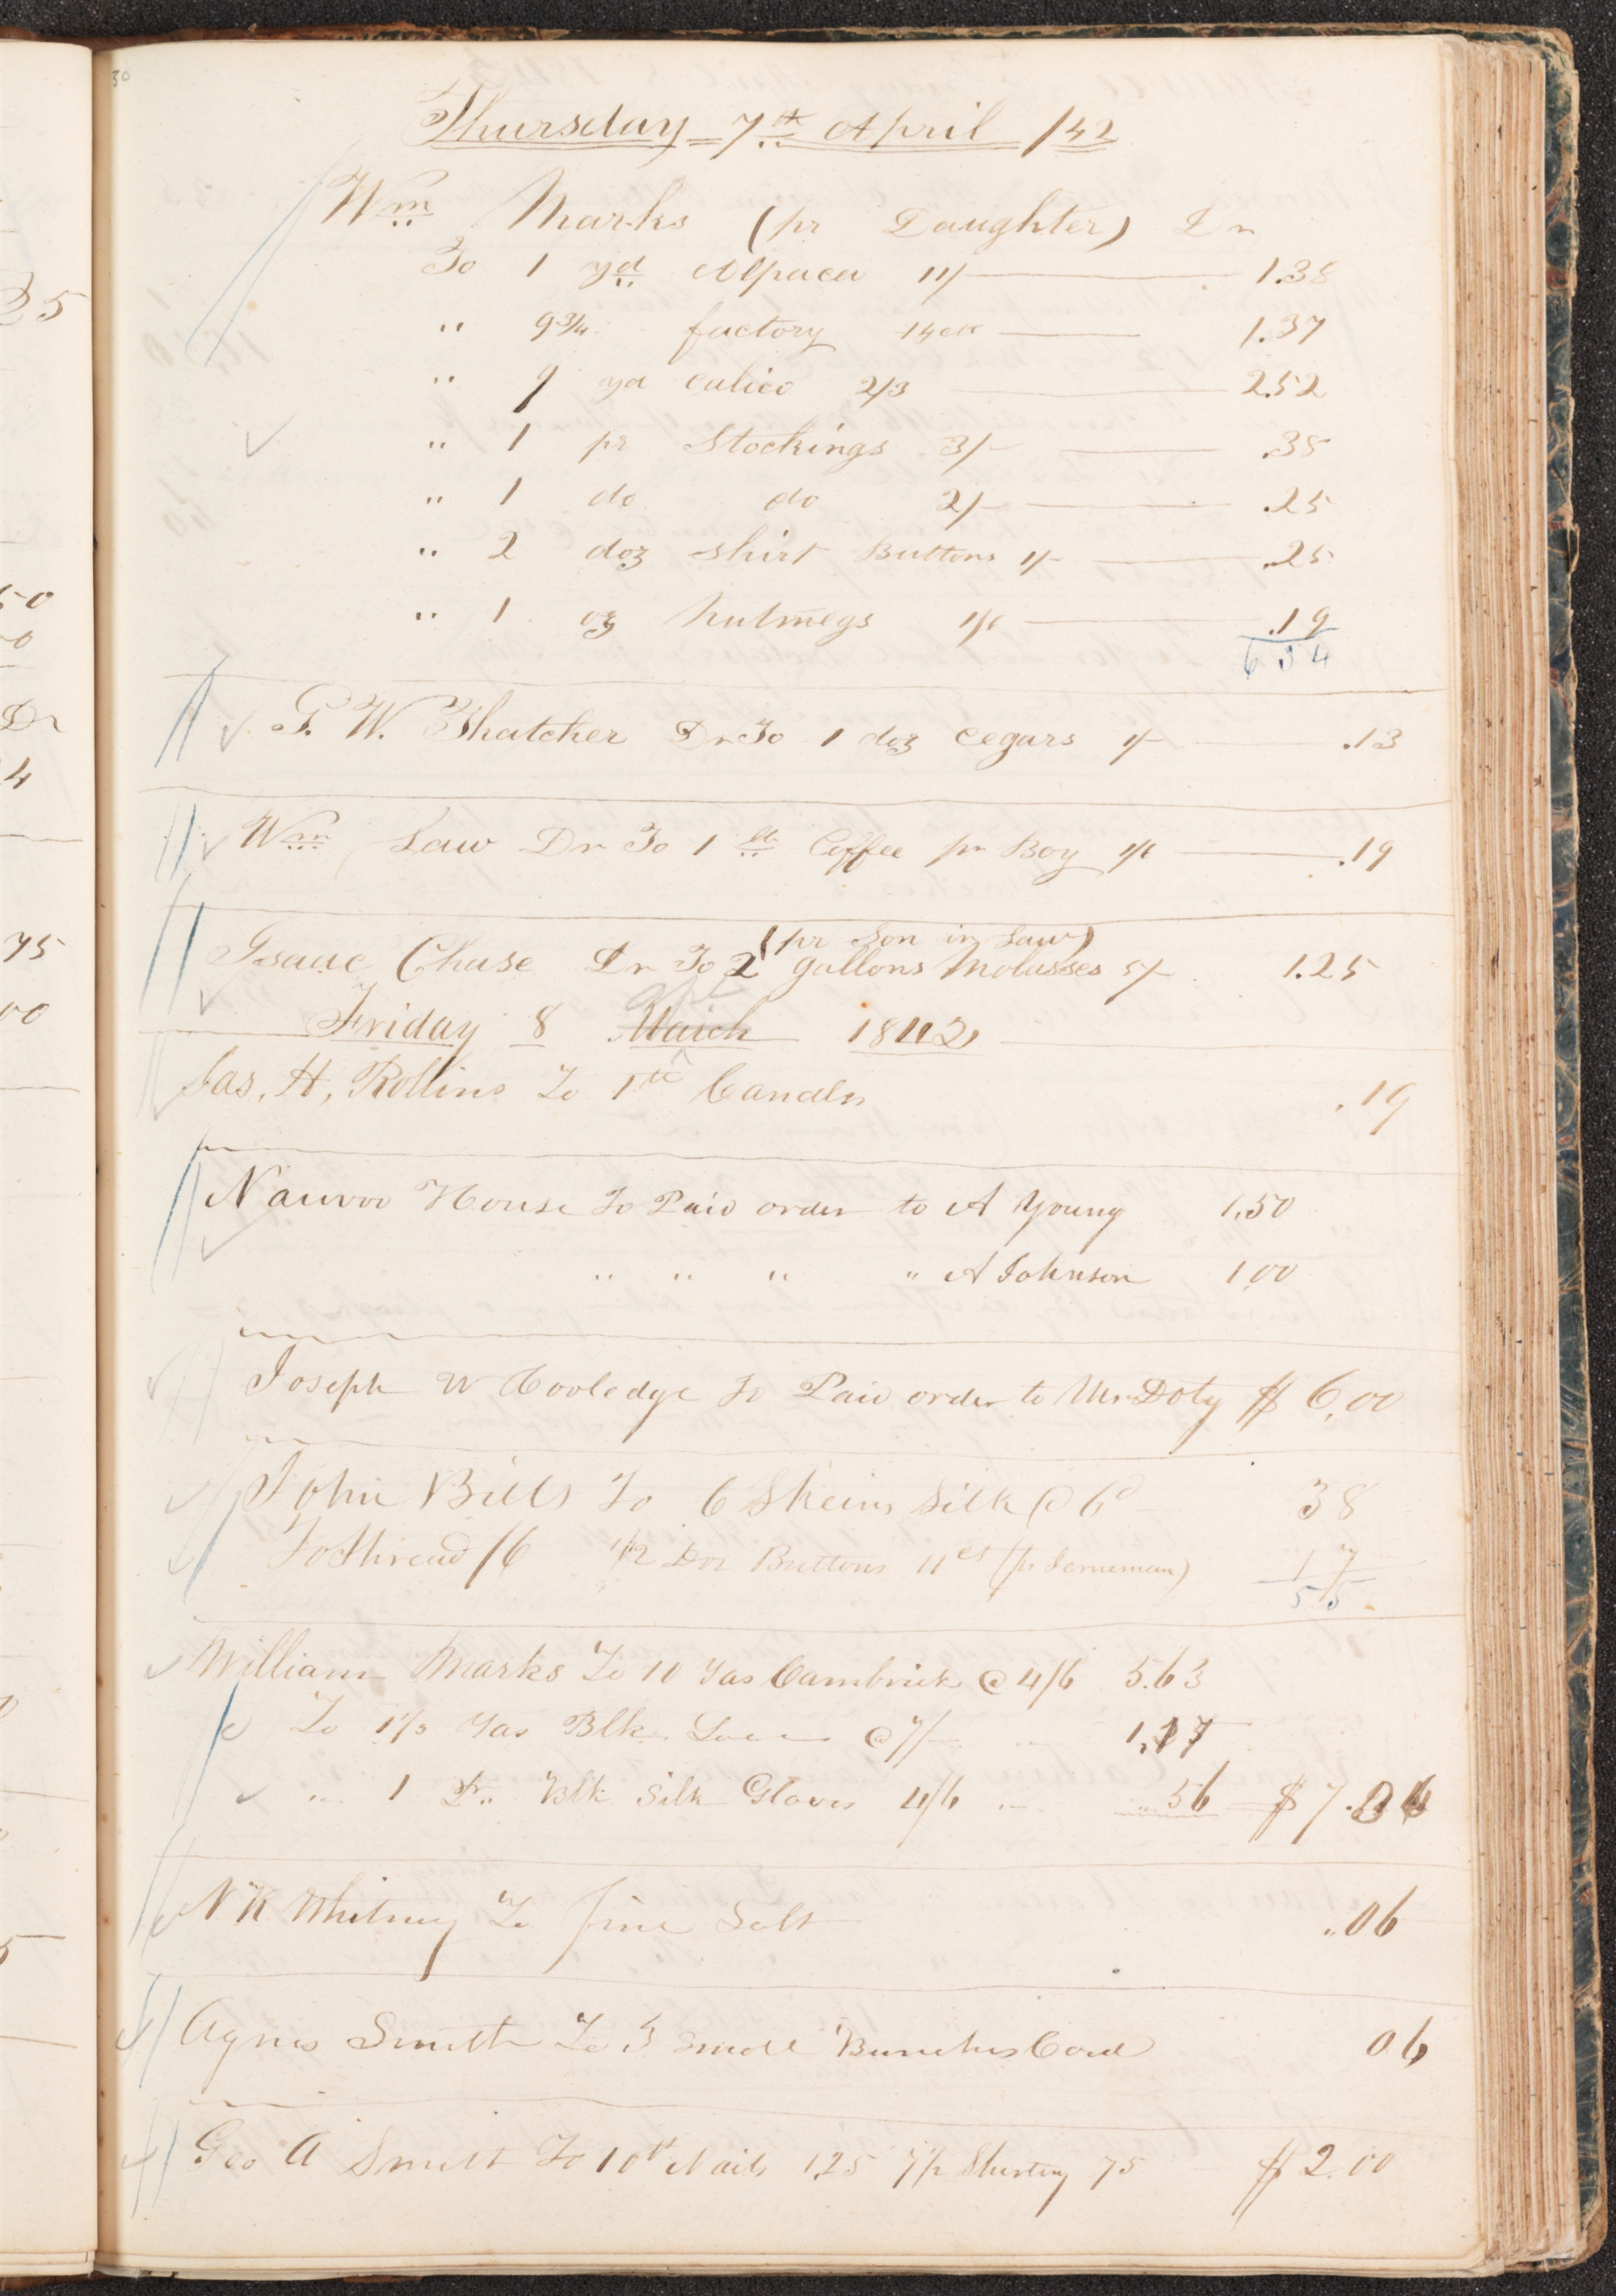 30
Thursday 7th April /42
Wm Marks (pr Daughter) Dr
To 1 yd Alpaca 11/ 1.38
" 9 3/4 factory 14cts 1.37
" 9 yd calico 2/3 2.52
" 1 pr Stockings 3/- .38
" 1 do do 2/- .25
" 2 doz shirt Buttons 1/- .25
" 1 oz nutmegs 1/6 .19
6 34
G. W. Thatcher Dr To 1 doz cegars 1/- .13
Wm Law Dr To 1 lb Coffee pr Boy 1/6 .19
(pr Son in Law)
Isaac Chase Dr To 2 gallons Molasses 5/- 1.25
Friday 8 March 1842
Jas. H. Rollins To 1 lb Candls .19
Nauvoo House To Paid order to A Young 1.50
" " " " A Johnson 1.00
Joseph W Cooledge To Paid order to Mr Doty $ 6.00
John Bills To 6 Skeins Silk @ 6d 38
To Thread /6 1/2 Doz Buttons 11ct 17
55
William Marks To 10 Yds Cambrick @ 4/6 5.63
To Yds Blk @ 7/-
" 1 Pr. Blk Silk Gloves 4/6 .56 $ 7.
N K Whitney To fine Salt .06
Agnes Smith To 3 Small Bunches Cord 06
Geo A Smith To 10 lb Nails 1.25 Shirting 75 $ 2.00
35
50
00
Dr
4
75
00
5